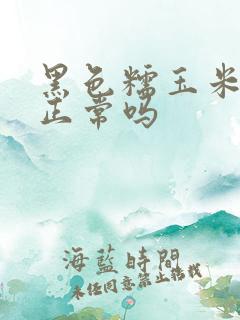 黑色糯玉米
正常吗
海藍時間
未经同意禁止转载